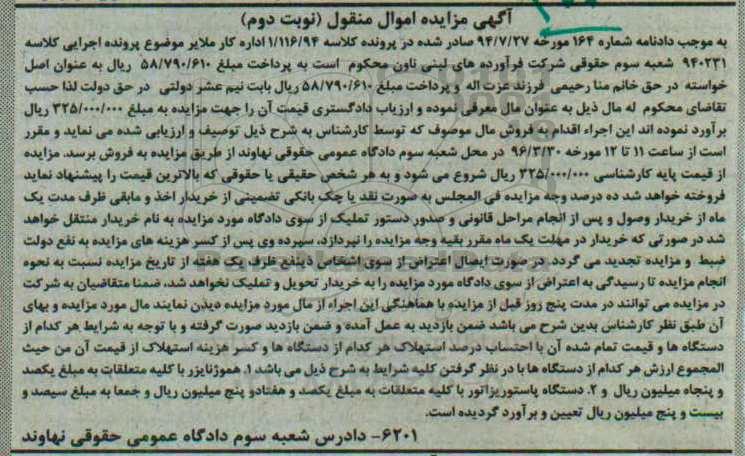 آگهی مزایده اموال منقول (نوبت دوم)
به موجب دادنامه شماره ۱۶۴ مورخه ۹۴/۷/۲۷ صادر شده در پرونده کلاسه ۱/۱۱۶/۹۴ اداره کار ملایر موضوع پرونده اجرایی کلاسه
۹۴۰۲۳۱ شعبه سوم حقوقی شرکت فرآورده های لبنی ناون محکوم است به پرداخت مبلغ ۵۸/۷۹۰/۶۱۰ ریال به عنوان اصل
خواسته در حق خانم منا رحیمی فرزند عزت اله و پرداخت مبلغ ۵۸/۷۹۰/۶۱۰ ریال بابت نیم عشر دولتی در حق دولت لذا حسب
تقاضای محکوم له مال ذیل به عنوان مال معرفی نموده و ارزیاب دادگستری قیمت آن را جهت مزایده به مبلغ ۳۲۵/۰۰۰/۰۰۰ ریال
برآورد نموده اند این اجراء اقدام به فروش مال موصوف که توسط کارشناس به شرح ذیل توصیف و ارزیابی شده می نماید و مقرر
است از ساعت ۱۱ تا ۱۲ مورخه ۹۶/۳/۳۰ در محل شعبه سوم دادگاه عمومی حقوقی نهاوند از طریق مزایده به فروش برسد. مزایده
از قیمت پایه کارشناسی ۳۲۵/۰۰۰/۰۰۰ ریال شروع می شود و به هر شخص حقیقی یا حقوقی که بالاترین قیمت را پیشنهاد نماید
فروخته خواهد شد ده درصد وجه مزایده فی المجلس به صورت نقد یا چک بانکی تضمینی از خریدار اخذ و مابقی ظرف مدت یک
ماه از خریدار وصول و پس از انجام مراحل قانونی و صدور دستور تملیک از سوی دادگاه مورد مزایده به نام خریدار منتقل خواهد
شد در صورتی که خریدار در مهلت یک ماه مقرر بقیه وجه مزایده را نپردازد، سپرده وی پس از کسر هزینه های مزایده به نفع دولت
ضبط و مزایده تجدید می گردد. در صورت ایصال اعتراض از سوی اشخاص ذینفع ظرف یک هفته از تاریخ مزایده نسبت به نحوه
انجام مزایده تا رسیدگی به اعتراض از سوی دادگاه مورد مزایده را به خریدار تحویل و تملیک نخواهد شد، ضمنا متقاضیان به شرکت
در مزایده می توانند در مدت پنج روز قبل از مزایده با هماهنگی این اجراء از مال مورد مزایده دیدن نمایند مال مورد مزایده و بهای
آن طبق نظر کارشناس بدین شرح می باشد ضمن بازدید به عمل آمده و ضمن بازدید صورت گرفته و با توجه به شرایط هر کدام از
دستگاه ها و قیمت تمام شده آن با احتساب درصد استهلاک هر کدام از دستگاه ها و کسر هزینه استهلاک از قیمت آن من حیث
المجموع ارزش هر کدام از دستگاه ها با در نظر گرفتن کلیه شرایط به شرح ذیل می باشد ۱. هموژنایزر با کلیه متعلقات به مبلغ یکصد
و پنجاه میلیون ریال و ۲. دستگاه پاستوریزاتور با کلیه متعلقات به مبلغ یکصد و هفتادو پنج میلیون ریال و جمعا به مبلغ سیصد و
بیست و پنج میلیون ریال تعیین و برآورد گردیده است.
۶۲۰۱- دادرس شعبه سوم دادگاه عمومی حقوقی نهاوند